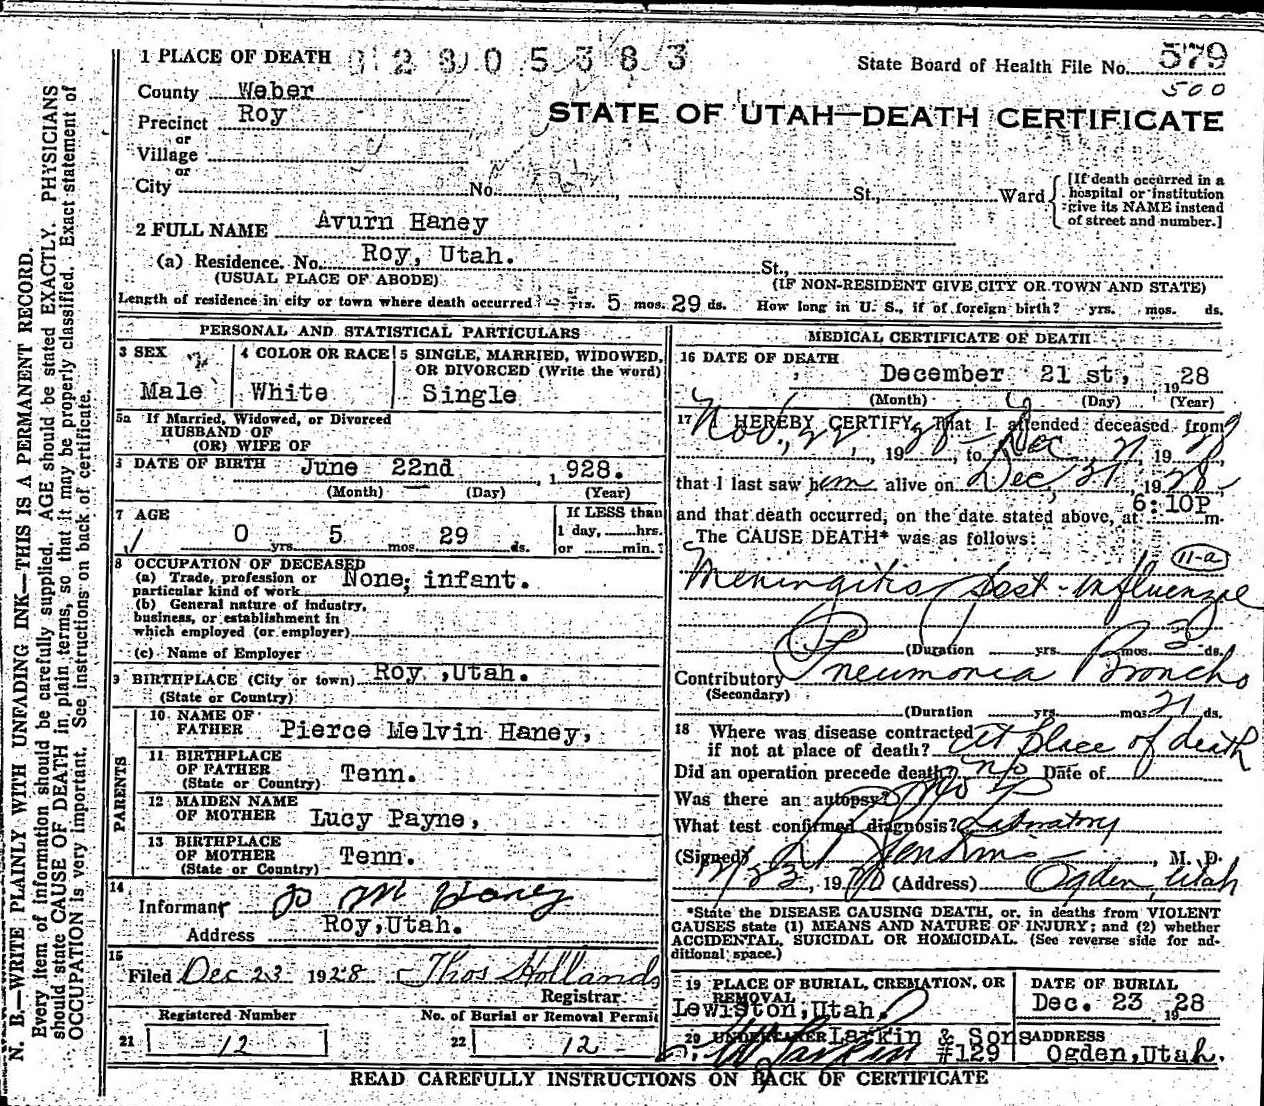 1 PLACE OF DEATH 02805383
State Board of Health File No. 579
500
County Weber
STATE OF UTAH—DEATH CERTIFICATE
Precinct Roy
or
Village
or
City No. St., Ward
[If death occurred in a
hospital or institution
give its NAME instead
of street and number.]
2 FULL NAME Avurn Haney
(a) Residence. No. Roy, Utah. St.,
(USUAL PLACE OF ABODE) (IF NON-RESIDENT GIVE CITY OR TOWN AND STATE)
Length of residence in city or town where death occurred? — yrs. 5 mos. 29 ds. How long in U. S., if of foreign birth? yrs. mos. ds.
PERSONAL AND STATISTICAL PARTICULARS
3 SEX
Male
4 COLOR OR RACE
White
5 SINGLE, MARRIED, WIDOWED,
OR DIVORCED (Write the word)
Single
5a If Married, Widowed, or Divorced
HUSBAND OF
(OR) WIFE OF
DATE OF BIRTH June 22nd, 1928.
(Month) (Day) (Year)
7 AGE
0 yrs. 5 mos. 29 ds.
If LESS than
1 day, hrs.
or min.
8 OCCUPATION OF DECEASED
(a) Trade, profession or
particular kind of work None, infant.
(b) General nature of industry,
business, or establishment in
which employed (or employer)
(c) Name of Employer
9 BIRTHPLACE (City or town) Roy, Utah.
(State or Country)
PARENTS
10 NAME OF
FATHER Pierce Melvin Haney,
11 BIRTHPLACE
OF FATHER Tenn.
(State or Country)
12 MAIDEN NAME
OF MOTHER Lucy Payne,
13 BIRTHPLACE
OF MOTHER Tenn.
(State or Country)
14
Informant M Haney
Address Roy, Utah.
15
Filed Dec 23 1928 Thos Hollands
Registrar
Registered Number No. of Burial or Removal Permit
21 12 22 12
MEDICAL CERTIFICATE OF DEATH
16 DATE OF DEATH
December 21 st, 1928
(Month) (Day) (Year)
17 I HEREBY CERTIFY, That I attended deceased from
Nov. 22, 1928, to Dec 21 1928
that I last saw him alive on Dec, 21, 1928
and that death occurred, on the date stated above, at 6:10P m.
The CAUSE DEATH* was as follows:
11-a
Meningitis Post-Influenzae
(Duration yrs. mos. 3 ds.
Contributory Pneumonia Broncho
(Secondary)
(Duration yrs. mos. 21 ds.
18 Where was disease contracted
if not at place of death? At place of death
Did an operation precede death? no Date of
Was there an autopsy? No
What test confirmed diagnosis? Laboratory
(Signed) Jenkins, M. D.
12/23, 1928 (Address) Ogden, Utah
*State the DISEASE CAUSING DEATH, or, in deaths from VIOLENT
CAUSES state (1) MEANS AND NATURE OF INJURY; and (2) whether
ACCIDENTAL, SUICIDAL OR HOMICIDAL. (See reverse side for ad-
ditional space.)
19 PLACE OF BURIAL, CREMATION, OR
REMOVAL
Lewiston, Utah.
DATE OF BURIAL
Dec. 23 1928
20 UNDERTAKER Larkin & Sons
#129
ADDRESS
Ogden, Utah.
READ CAREFULLY INSTRUCTIONS ON BACK OF CERTIFICATE
N. B.—WRITE PLAINLY WITH UNFADING INK—THIS IS A PERMANENT RECORD.
Every item of information should be carefully supplied. AGE should be stated EXACTLY. PHYSICIANS
should state CAUSE OF DEATH in plain terms, so that it may be properly classified. Exact statement of
OCCUPATION is very important. See instructions on back of certificate.